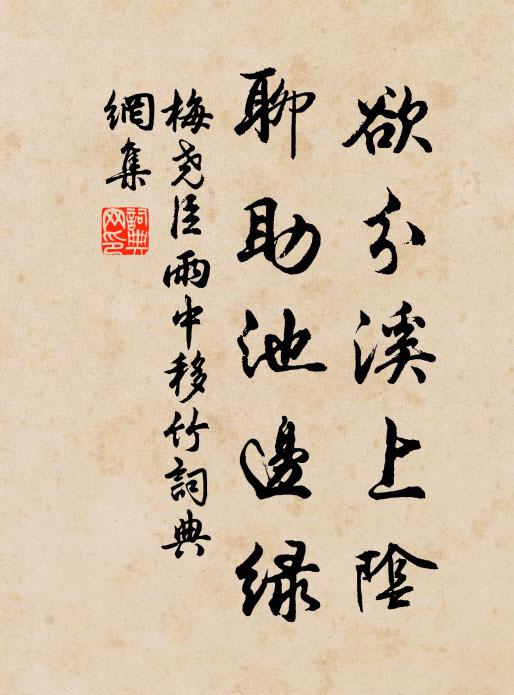 欲分溪上陰
聊助池邊綠
梅尧臣雨中移竹詞典
網集
詞典
网印